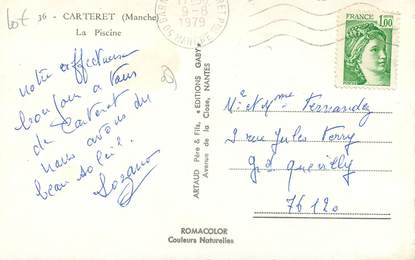 lot
36 - CARTERET (Manche)
La Piscine
9-8
1979
FRANCE
1,00
notre affectueux
bonjour à tous
de Carteret
nous avons du
beau soleil.
ARTAUD Père & Fils, « EDITIONS GABY »
Avenue de la Close, NANTES
Mr et Mme Fernandez
rue Jules Ferry
Gd Quevilly
76120
ROMACOLOR
Couleurs Naturelles